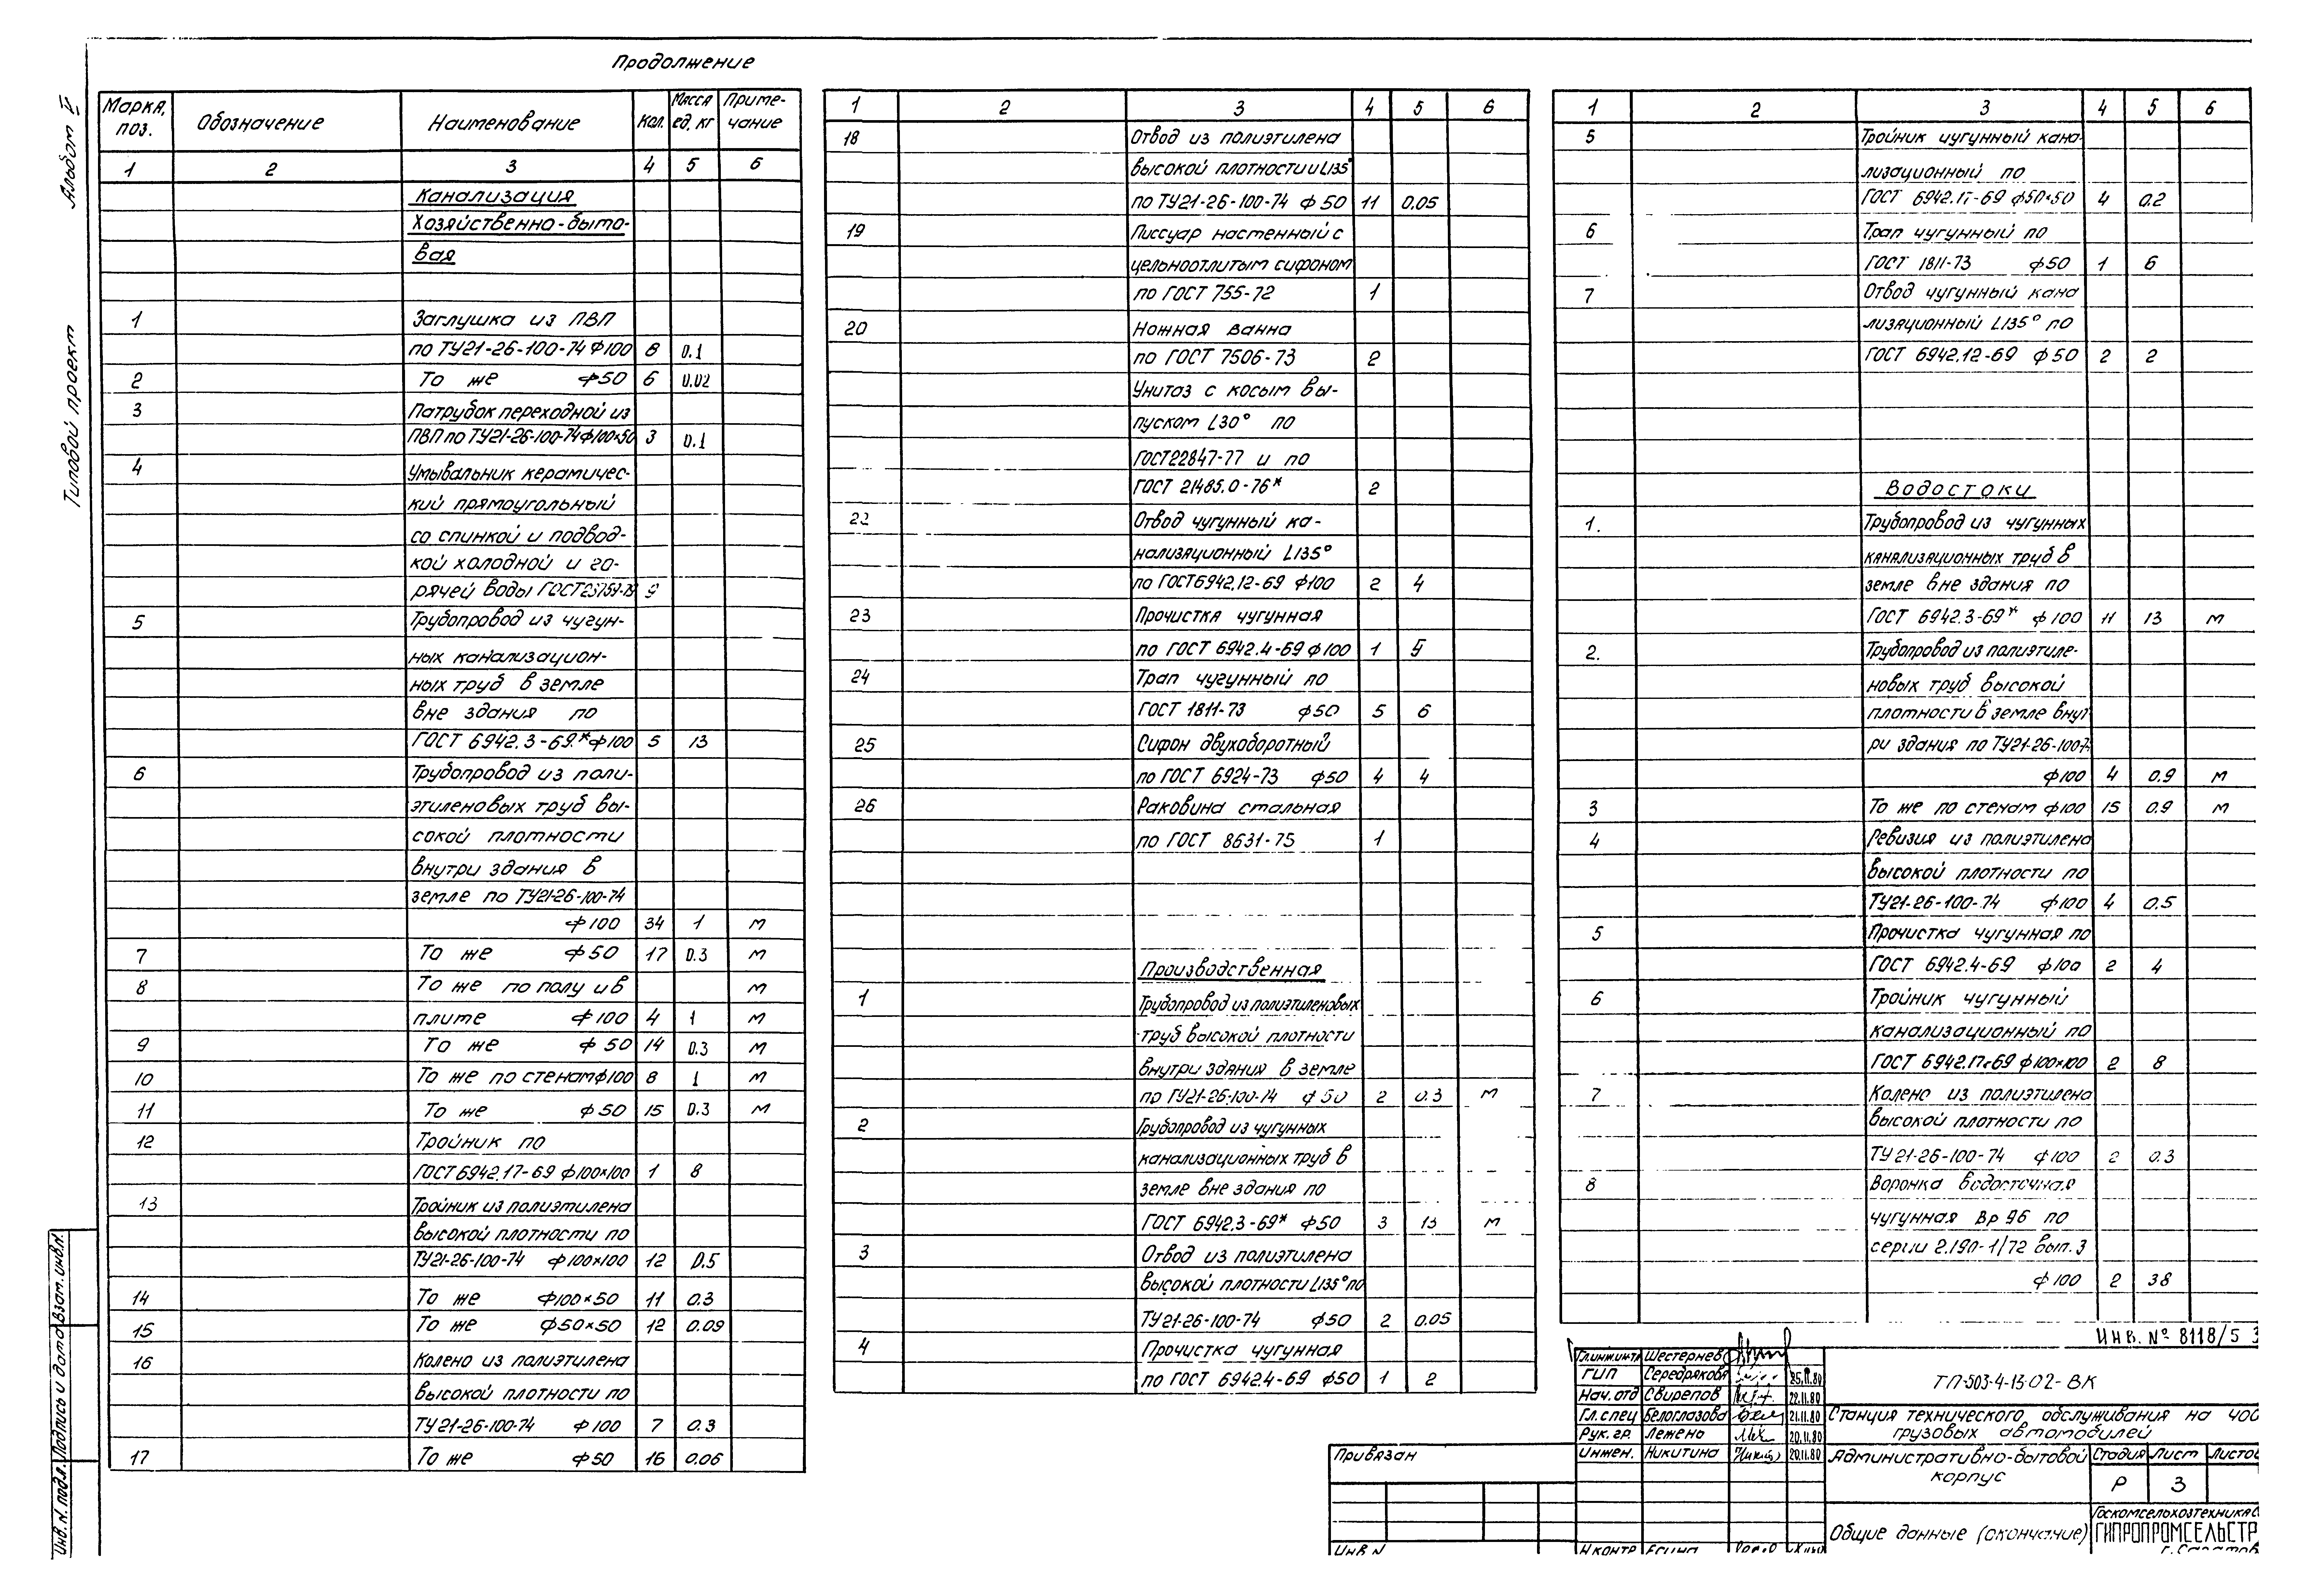 Продолжение
Альбом V
Типовой проект
Марка, поз. Обозначение Наименование Кол. Масса ед. кг Приме-чание
1 2 3 4 5 6
Канализация
Хозяйственно-быто-
вая
1 Заглушка из ПВП
по ТУ21-26-100-74 Ф100 8 0.1
2 То же ф50 6 0.02
3 Патрубок переходной из
ПВП по ТУ21-26-100-74 ф100×50 3 0.1
4 Умывальник керамичес-
кий прямоугольный
со спинкой и подвод-
кой холодной и го-
рячей воды 9
5 Трубопровод из чугун-
ных канализацион-
ных труб в земле
вне здания по
ГОСТ 6942.3-69.* ф100 5 13
6 Трубопровод из поли-
этиленовых труб вы-
сокой плотности
внутри здания в
земле по ТУ21-26-100-74
ф100 34 1 м
7 То же ф50 17 0.3 м
8 То же по полу и в м
плите ф100 4 1 м
9 То же ф50 14 0.3 м
10 То же по стенам ф100 8 1 м
11 То же ф50 15 0.3 м
12 Тройник по
ГОСТ 6942.17-69 ф100×100 1 8
13 Тройник из полиэтилена
высокой плотности по
ТУ21-26-100-74 ф100×100 12 0.5
14 То же ф100×50 11 0.3
15 То же ф50×50 12 0.09
16 Колено из полиэтилена
высокой плотности по
ТУ21-26-100-74 ф100 7 0.3
17 То же ф50 16 0.06
1 2 3 4 5 6
18 Отвод из полиэтилена
высокой плотности и L135°
по ТУ21-26-100-74 ф50 11 0.05
19 Писсуар настенный с
цельноотлитым сифоном
по ГОСТ 755-72 1
20 Ножная ванна
по ГОСТ 7506-73 2
Унитаз с косым вы-
пуском L30° по
ГОСТ22847-77 и по
ГОСТ 21485.0-76* 2
22 Отвод чугунный ка-
нализяционный L135°
по ГОСТ6942.12-69 ф100 2 4
23 Прочистка чугунная
по ГОСТ 6942.4-69 ф100 1 5
24 Трап чугунный по
ГОСТ 1811-73 ф50 5 6
25 Сифон двухоборотный
по ГОСТ 6924-73 ф50 4 4
26 Раковина стальная
по ГОСТ 8631-75 1
Производственная
1 Трубопровод из полиэтиленовых
труб высокой плотности
внутри здания в земле
по ТУ21-26-100-74 ф50 2 0.3 м
2 Трубопровод из чугунных
канализационных труб в
земле вне здания по
ГОСТ 6942.3-69* ф50 3 13 м
3 Отвод из полиэтилена
высокой плотности L135° по
ТУ21-26-100-74 ф50 2 0.05
4 Прочистка чугунная
по ГОСТ 6942.4-69 ф50 1 2
1 2 3 4 5 6
5 Тройник чугунный кана-
лизационный по
ГОСТ 6942.17-69 ф50×50 4 0.2
6 Трап чугунный по
ГОСТ 1811-73 ф50 1 6
7 Отвод чугунный кана
лизяционный L135° по
ГОСТ 6942.12-69 ф50 2 2
Водостоки
1. Трубопровод из чугунных
канализяционных труб в
земле вне здания по
ГОСТ 6942.3-69* ф100 11 13 м
2. Трубопровод из полиэтиле-
новых труб высокой
плотности в земле внут
ри здания по ТУ21-26-100-7
ф100 4 0.9 м
3 То же по стенам ф100 15 0.9 м
4 Ревизия из полиэтилена
высокой плотности по
ТУ21-26-100-74 ф100 4 0.5
5 Прочистка чугунная по
ГОСТ 6942.4-69 ф100 2 4
6 Тройник чугунный
канализационный по
ГОСТ 6942.17-69 ф100×100 2 8
7 Колено из полиэтилена
высокой плотности по
ТУ 21-26-100-74 ф100 2 0.3
8 Воронка водосточная
чугунная Вр 9б по
серии 2.190-1/72 вып.3
ф100 2 38
ИНВ. № 8118/5 3
Гл.инж.инта Шестернев
ГИП Середрякова 25.11.80
Нач. отд Свирепов 22.11.80
Гл. спец Белоглазова 21.11.80
Рук. гр. Лежено 20.11.80
Инжен. Никитина 20.11.80
Н.контр
ТП-503-4-13-02-ВК
Станция технического обслуживания на 400
грузовых автомобилей
Административно-бытовой
корпус
Стадия Лист Листов
Р 3
Общие данные (окончание)
Госкомсельхозтехника С
ГИПРОПРОМСЕЛЬСТР
г. Саратов
Привязан
Инв N
Инв. N. подл. Подпись и дата Взам. инв. N.